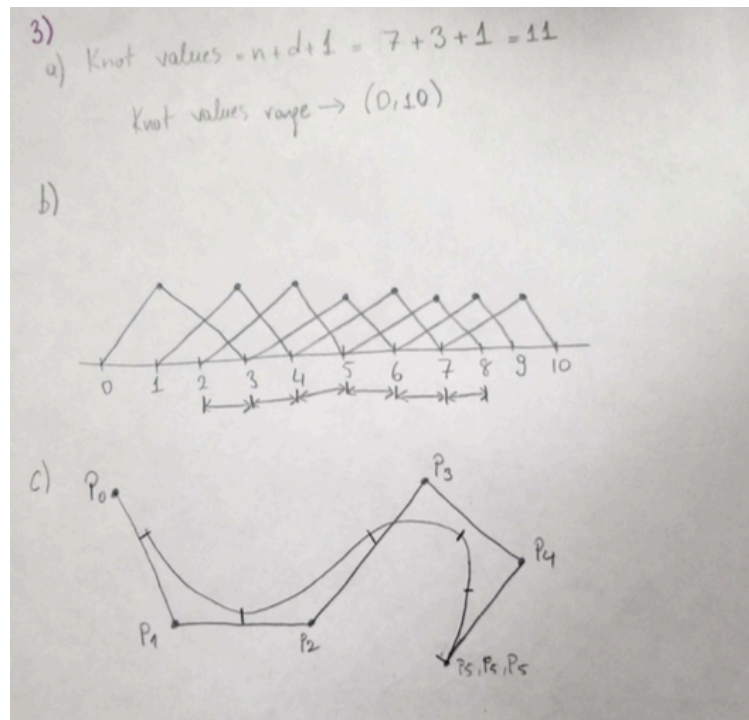 3)
a) Knot values = n + d + 1 = 7 + 3 + 1 = 11
Knot values range → (0,10)
b)
0 1 2 3 4 5 6 7 8 9 10
c)
P0
P3
P4
P1
P2
P5, P5, P5